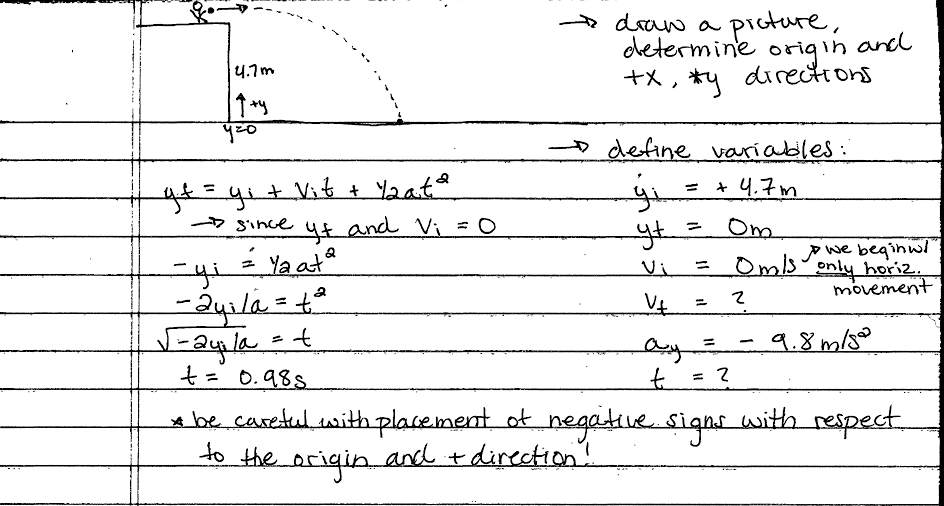 → draw a picture,
determine origin and
+x, *y directions
4.7m
↑ +y
y=0
→ define variables:
yf = yi + Vit + 1/2at²
→ since yf and Vi = 0
-yi = 1/2at²
-2yi/a = t²
√-2yi/a = t
t = 0.98s
yi = + 4.7m
yf = 0m
Vi = 0m/s → we begin w/
only horiz.
movement
Vf = ?
ay = - 9.8 m/s²
t = ?
* be careful with placement of negative signs with respect
to the origin and + direction!